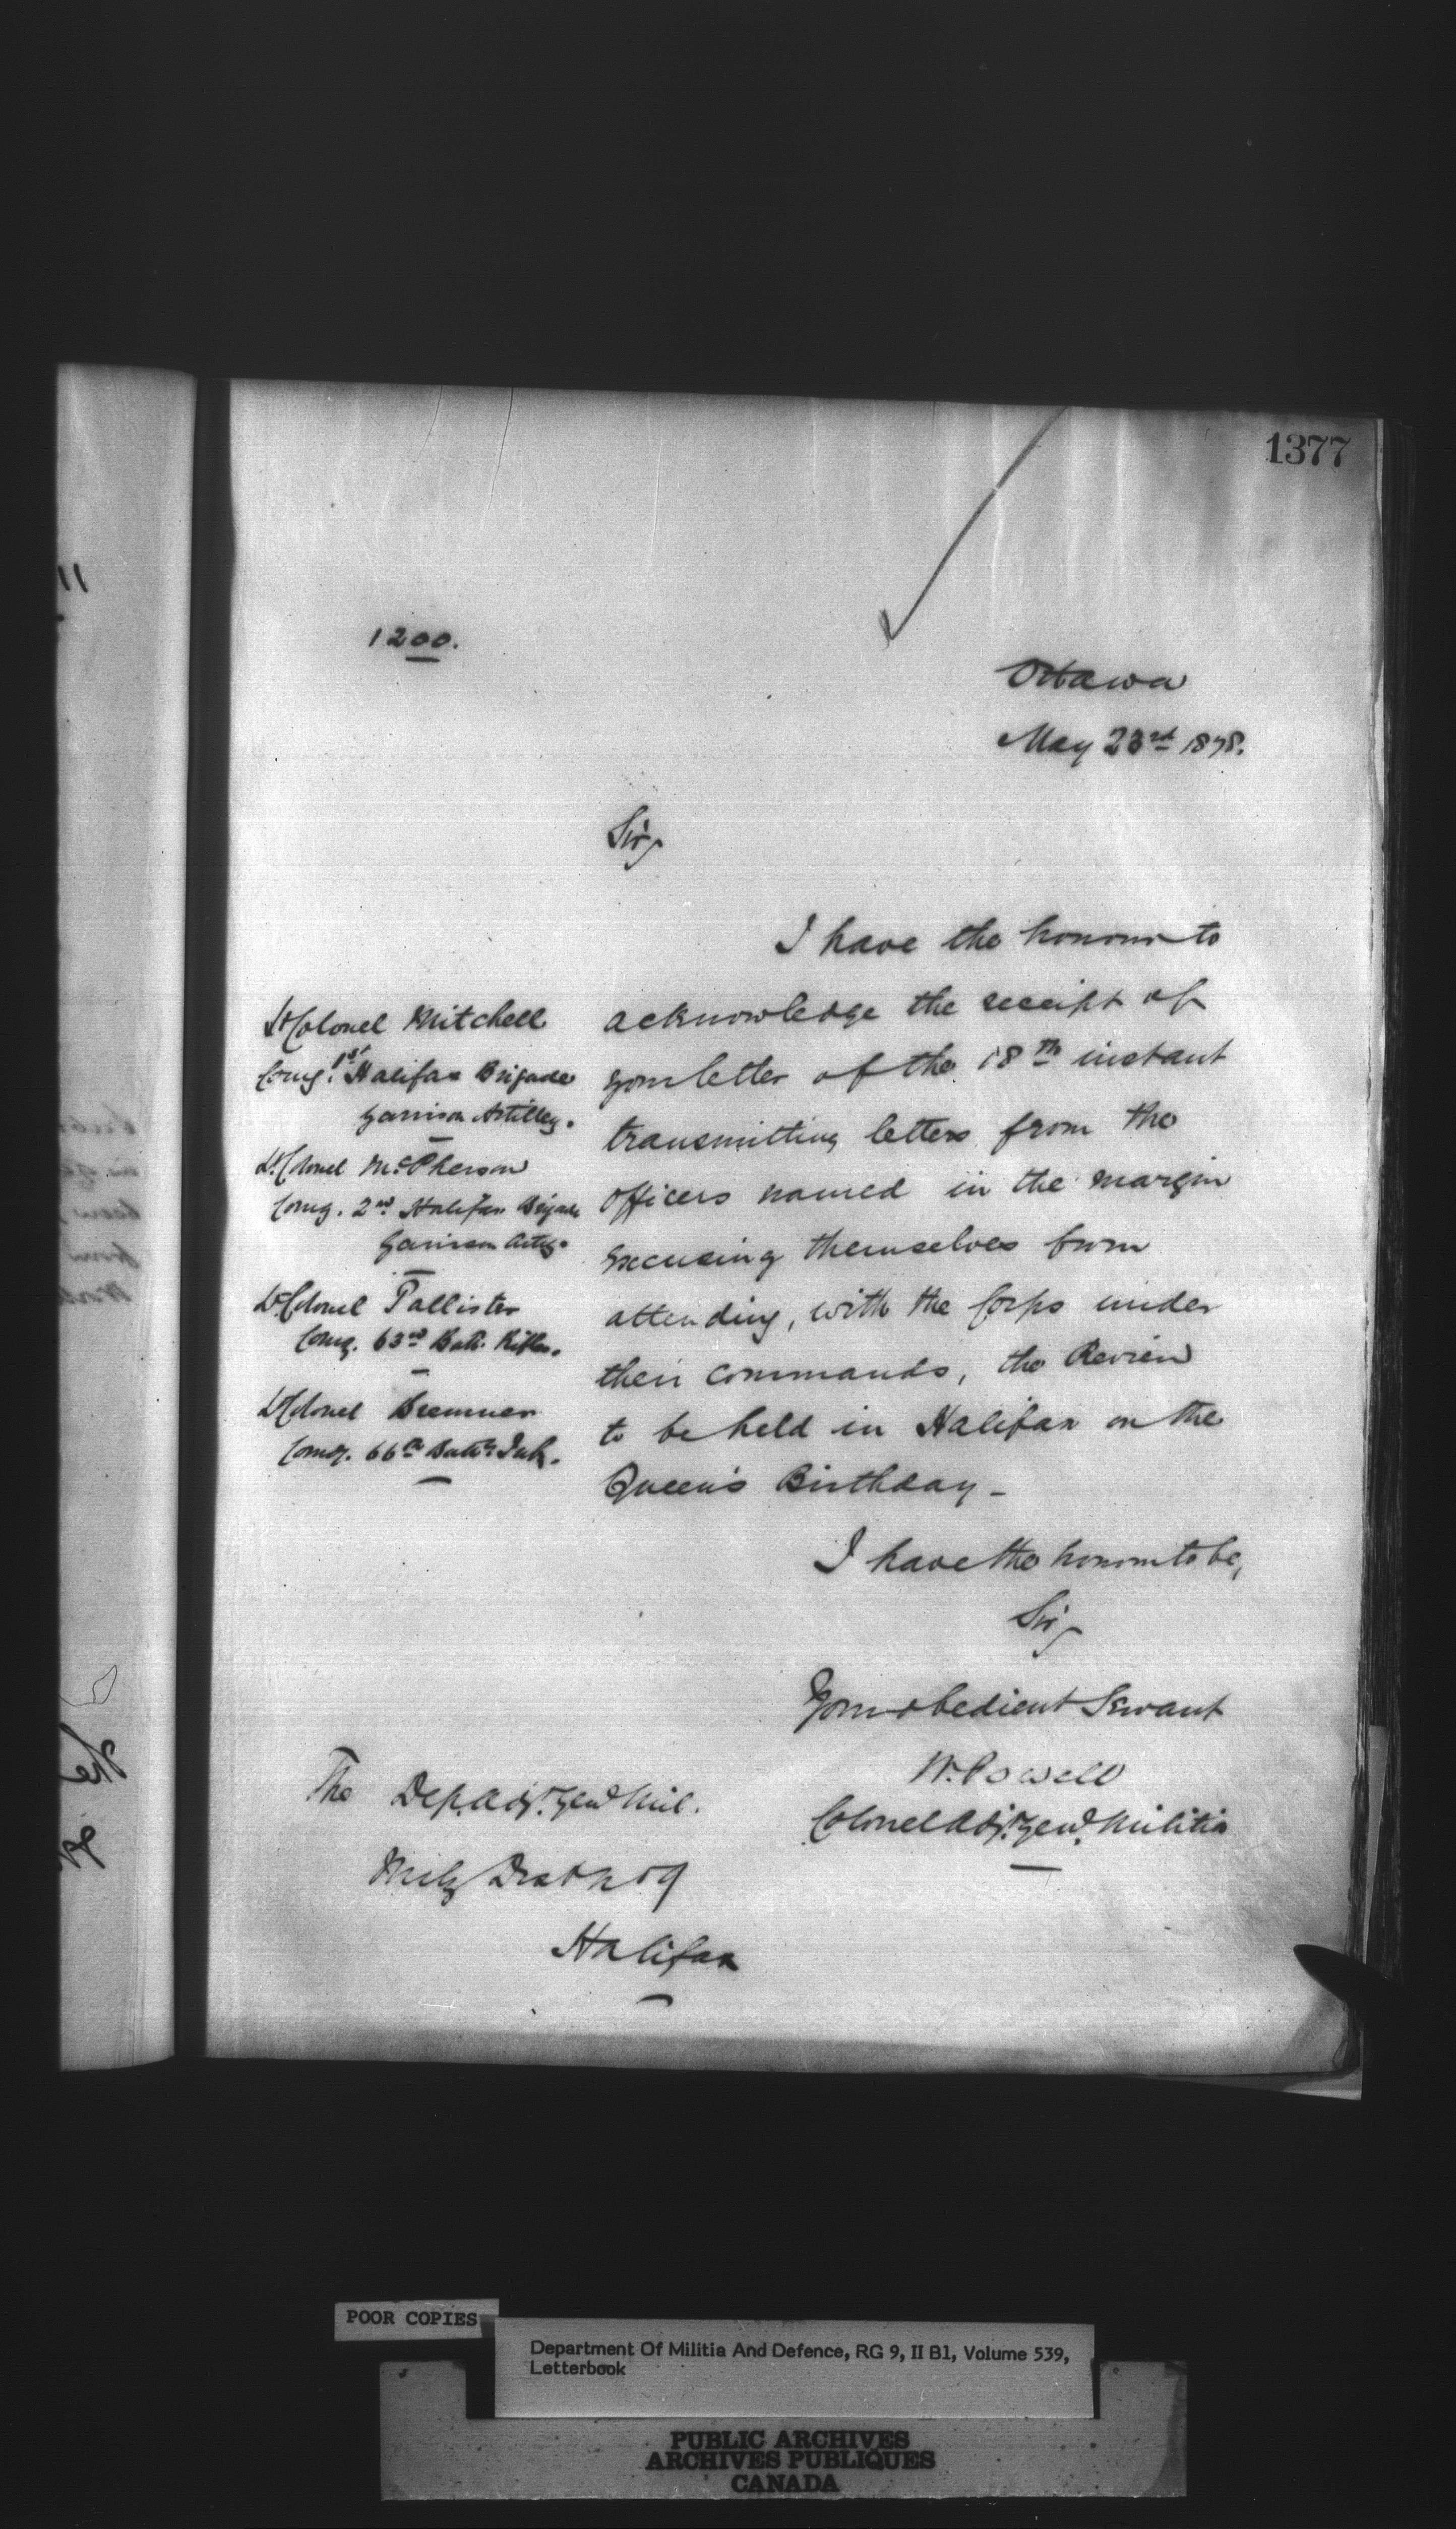 1377
1200.
Ottawa
May 23rd 1878.
Sir,
I have the honour to
acknowledge the receipt of
your letter of the 18th instant
transmitting letters from the
officers named in the margin
excusing themselves from
attending, with the Corps under
their commands, the Review
to be held in Halifax on the
Queen's Birthday -
Lt Colonel Mitchell
Comg. 1st Halifax Brigade
Garrison Artilley.
Lt. Colonel McPherson
Comg. 2nd Halifax Brigade
Garrison Arty.
Lt Colonel Pallister
Comg. 63rd Batt. Rifles.
Lt Colonel Bremner
Comg. 66th Battn Inf.
I have the honour to be,
Sir,
Your obedient Servant
W. Powell
Colonel Adjt. Genl. Militia
The Dep. Adjt. Genl Mil.
Mily Dist No 9
Halifax
POOR COPIES
Department Of Militia And Defence, RG 9, II B1, Volume 539,
Letterbook
PUBLIC ARCHIVES
ARCHIVES PUBLIQUES
CANADA